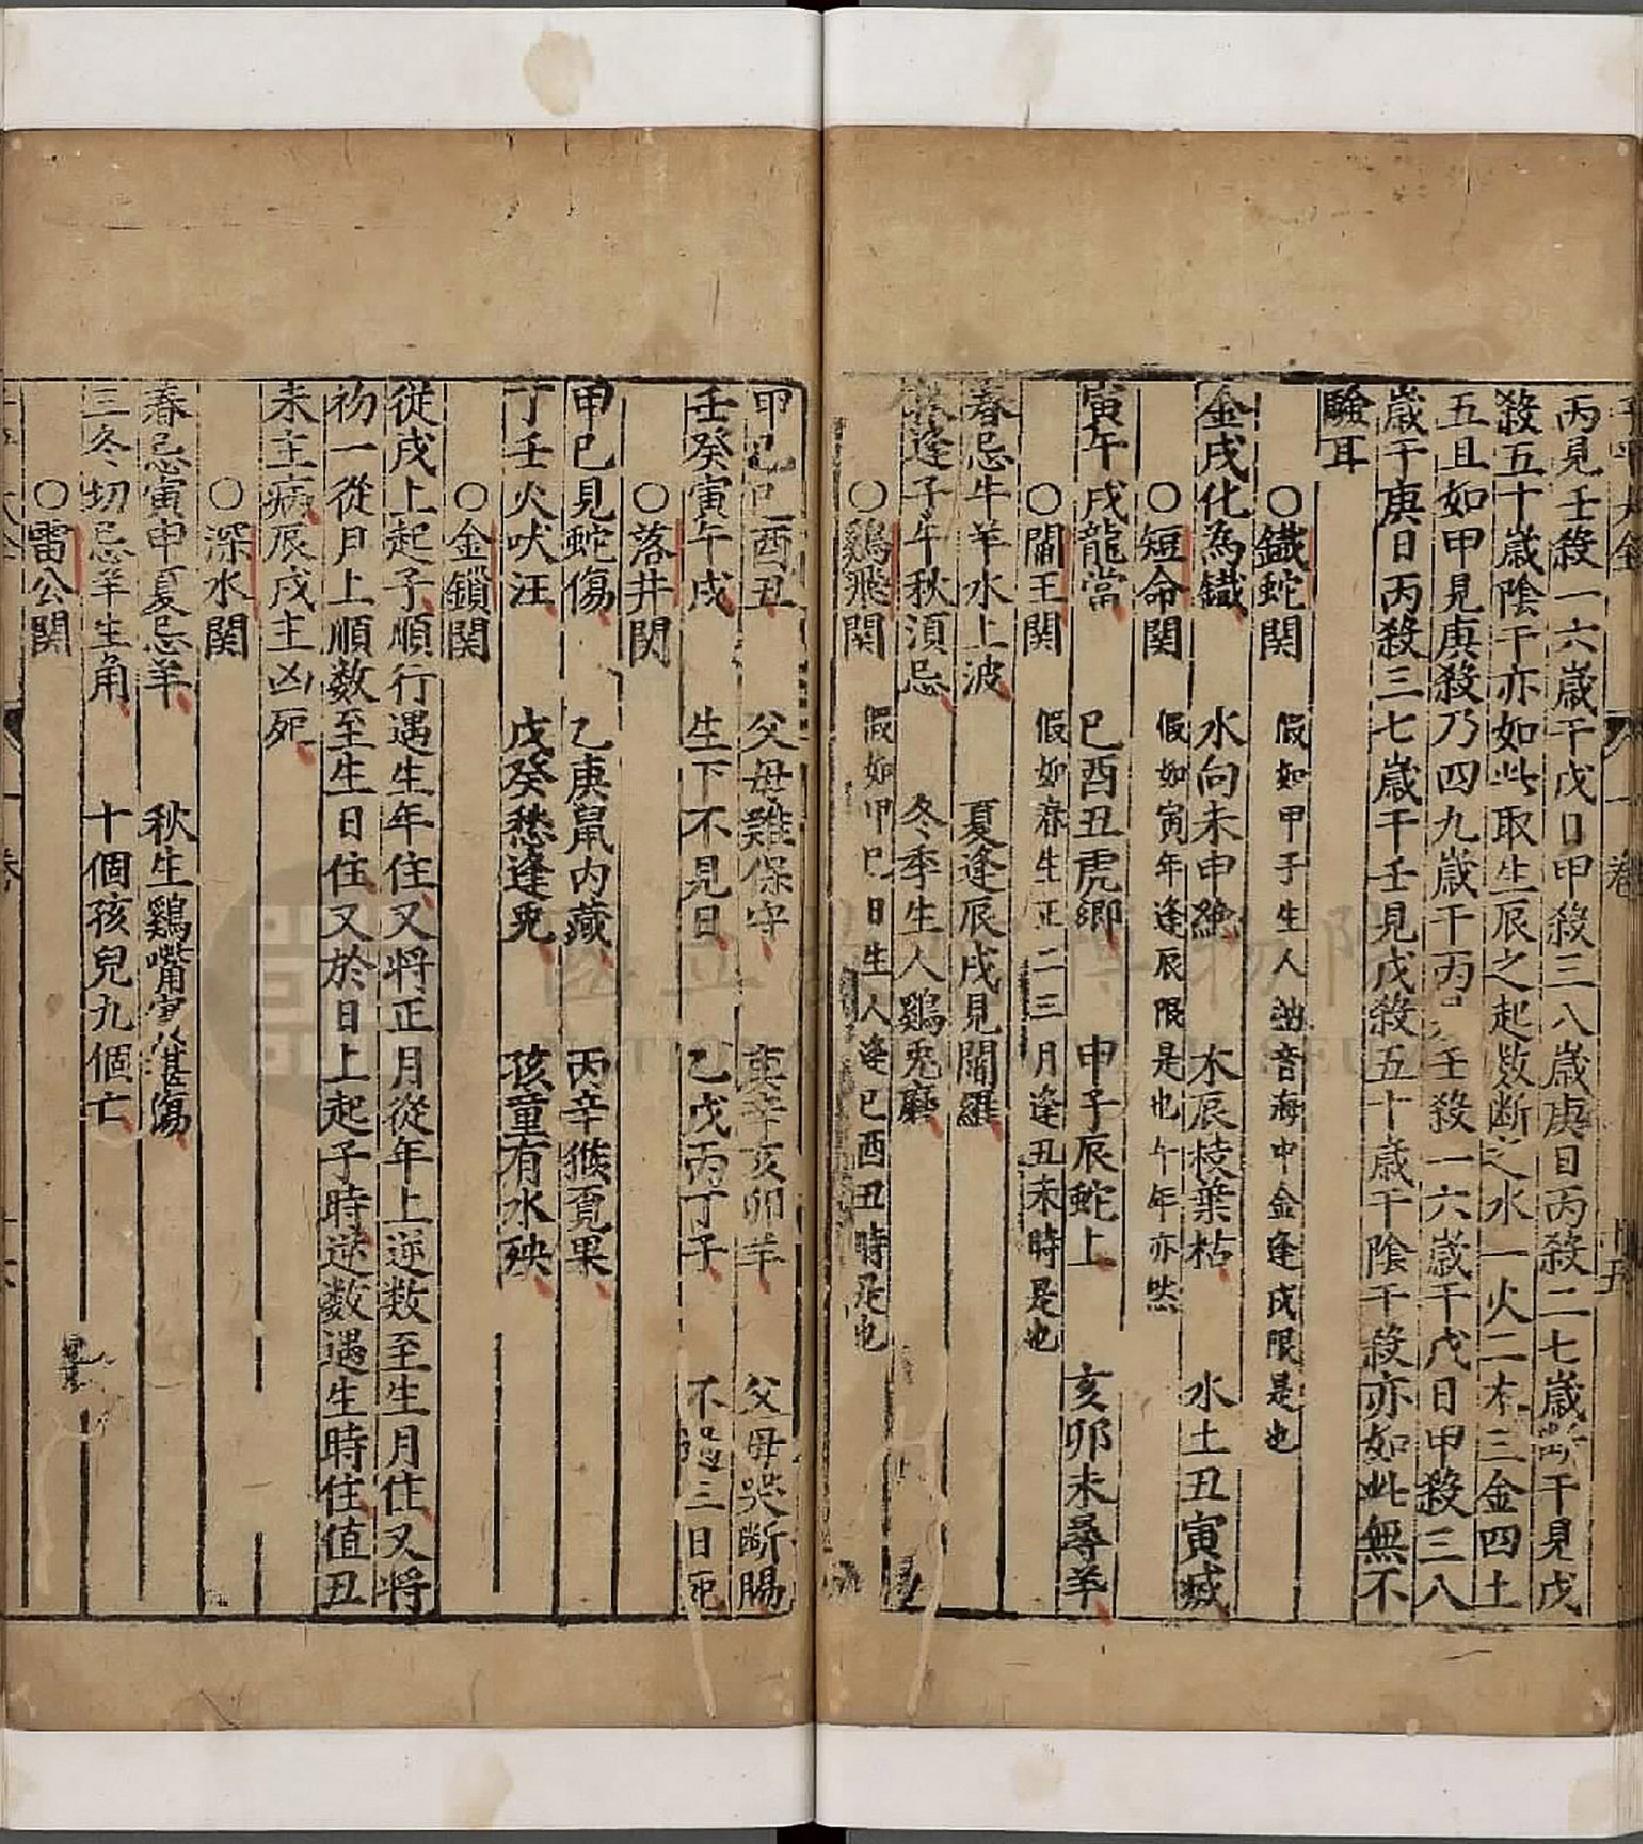 丙見壬殺一六歲干戊日甲殺三八歲庚日丙殺二七歲干見戊
殺五十歲陰干亦如此取生辰之起數斷之水一火二木三金四土
五且如甲見庚殺乃四九歲干丙壬殺一六歲干戊日甲殺三八
歲干庚日丙殺三七歲干壬見戊殺五十歲干陰干殺亦如此無不
驗耳
○鐵蛇関 假如甲子生人納音海中金逢戌限是也
金戌化為鐵 水向未申絶 木辰枝葉枯 水土丑寅㓕
○短命関 假如寅年逢辰限是也午年亦然
寅午戌龍當 巳酉丑虎鄉 申子辰蛇上 亥卯未尋羊
○閻王関 假如春生正二三月逢丑未時是也
春忌牛羊水上波 夏逢辰戌見閻羅
逢子午秋須忌 冬季生人鷄兎
○鷄飛関 假如甲巳日生人逢巳酉丑時是也
甲己巳酉丑 父母難保守 庚辛亥卯羊 父母哭断腸
壬癸寅午戌 生下不見日 乙戊丙丁子 不過三日死
○落井関
甲己見蛇傷 乙庚鼠内藏 丙辛猴覔果
丁壬火吠汪 戊癸愁逢兎 孩童有水殃
○金鎖関
從戌上起子順行遇生年住又将正月從年上逆数至生月住又将
初一從月上順数至生日住又於日上起子時逆数遇生時住值丑
未主病辰戌主凶死
○深水関
春忌寅申夏忌羊 秋生鷄嘴傷
三冬切忌羊生角 十個孩兒九個亡
○雷公関